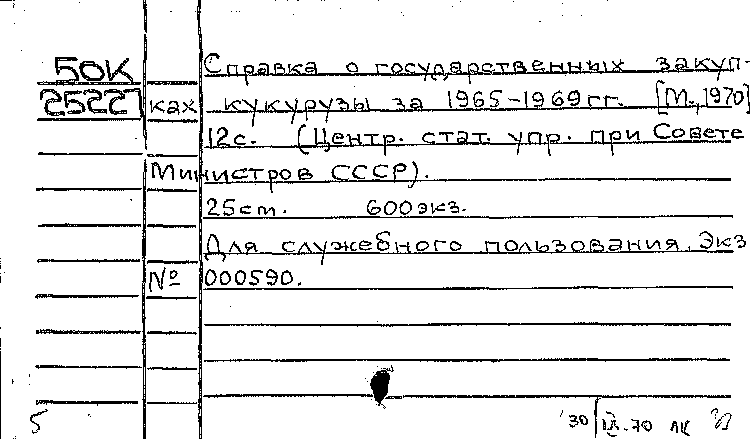 50К Справка о государственных закуп-
25227 ках кукурузы за 1965-1969гг. [М., 1970]
12с. (Центр. стат. упр. при Совете
Министров СССР).
25см. 600экз.
Для служебного пользования. Экз
№ 000590.
5 30 IX.70